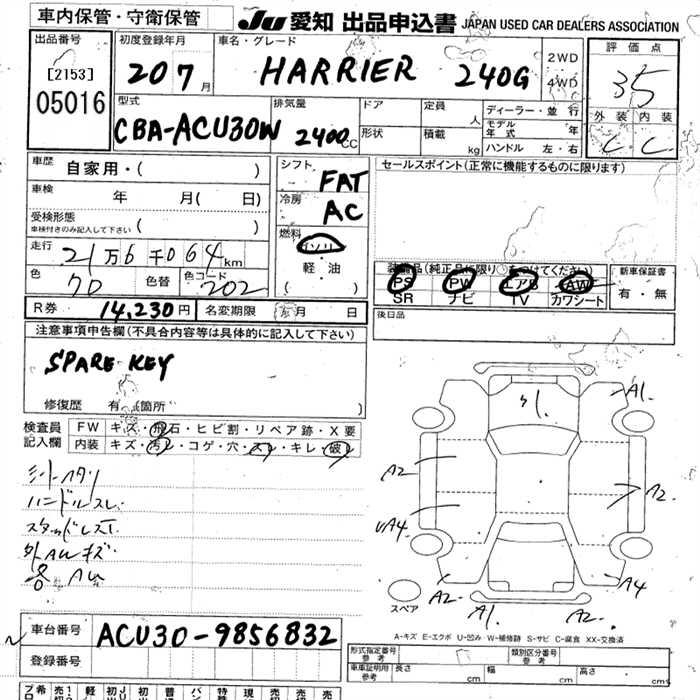 車内保管・守衛保管
JU 愛知 出品申込書 JAPAN USED CAR DEALERS ASSOCIATION
出品番号
[2153]
05016
初度登録年月
20 7 月
車名・グレード
HARRIER 240G
2WD
4WD
評価点
3.5
外装 内装
C C
型式
CBA-ACU30W
排気量
2400 CC
ドア
形状
定員 人
積載 kg
ディーラー・並行
モデル年式 年
ハンドル 左・右
車歴 自家用・( )
車検 年 月( 日)
受検形態
車検付きのみ記入して下さい ( )
走行 21万6千064km
色 70 色替 色コード 202
シフト FAT
冷房 AC
燃料
ガソリン
軽・油
( )
セールスポイント(正常に機能するものに限ります)
装備品(純正品に限り○をつけてください)
PS PW エアB AW
SR ナビ TV カワシート
新車保証書
有・無
R券 14,230円 名変期限 月 日
後日品
注意事項申告欄(不具合内容等は具体的に記入して下さい)
SPARE KEY
修復歴 有 箇所
検査員記入欄
FW キズ・飛石・ヒビ割・リペア跡・X要
内装 キズ・汚レ・コゲ・穴・スレ・キレ・破レ
シートヘタリ
ハンドルスレ
スタッドレス
外AWキズ
A1
A1
A2
A2
A4
A2
A1
A4
スペア
A-キズ E-エクボ U-凹み W-補修跡 S-サビ C-腐食 XX-交換済
車台番号 ACU30-9856832
登録番号
形式指定番号 参考
類別区分番号 参考
車庫証明用 参考 長さ cm 幅 cm 高さ cm